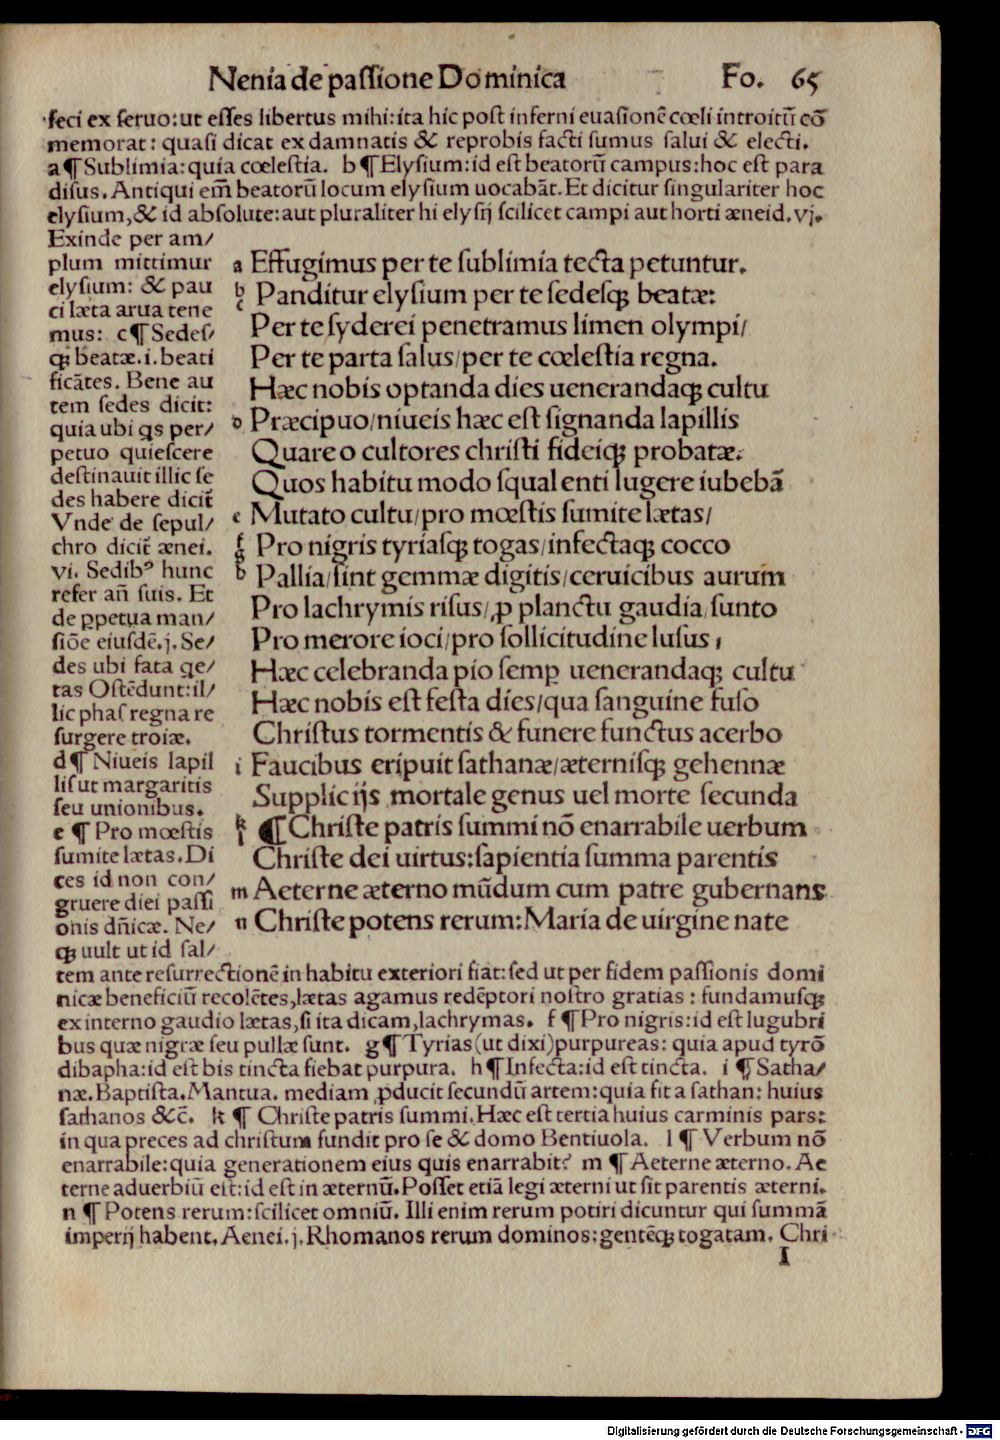 Nenia de passione Dominica Fo. 65
feci ex seruo:ut esses libertus mihi:ita hic post inferni euasionē cœli introitū cō
memorat: quasi dicat ex damnatis & reprobis facti sumus salui & electi.
a¶Sublimia:quia cœlestia. b¶Elysium:id est beatorū campus:hoc est para
disus.Antiqui em̄ beatorū locum elysium uocabāt.Et dicitur singulariter hoc
elysium,& id absolute:aut pluraliter hi elysij scilicet campi aut horti æneid.vj.
Exinde per am/
plum mittimur
elysium: & pau
ci læta arua tene
mus: c¶Sedes/
qꝫ beatæ.i.beati
ficātes. Bene au
tem sedes dicit:
quia ubi qs per/
petuo quiescere
destinauit illic se
des habere dicit̄
Vnde de sepul/
chro dicit̄ ænei.
vi. Sedibꝰ hunc
refer an̄ suis. Et
de ꝑpetua man/
siōe eiusdē.j.Se/
des ubi fata qe/
tas Ostēdunt:il/
lic phaſ regna re
surgere troiæ.
d¶Niueis lapil
lis ut margaritis
seu unionibus.
e ¶Pro mœstis
sumite lætas.Di
ces id non con/
gruere diei passi
onis dn̄icæ. Ne/
qꝫ uult ut id sal/
a Effugimus per te sublimia tecta petuntur.
b c Panditur elysium per te sedesqꝫ beatæ:
Per te syderei penetramus limen olympi/
Per te parta salus/per te cœlestia regna.
Hæc nobis optanda dies uenerandaqꝫ cultu
d Præcipuo/niueis hæc est signanda lapillis
Quare o cultores christi fideiqꝫ probatæ.
Quos habitu modo squalenti lugere iubebā
e Mutato cultu/pro mœstis sumite lætas/
f g Pro nigris tyriasqꝫ togas/infectaqꝫ cocco
h Pallia/sint gemmæ digitis/ceruicibus aurum
Pro lachrymis risus/ꝓ planctu gaudia sunto
Pro merore ioci/pro sollicitudine lusus,
Hæc celebranda pio semꝑ uenerandaqꝫ cultu
Hæc nobis est festa dies/qua sanguine fuso
Christus tormentis & funere functus acerbo
i Faucibus eripuit sathanæ/æternisqꝫ gehennæ
Supplicijs mortale genus uel morte secunda
k l ¶Christe patris summi nō enarrabile uerbum
Christe dei uirtus:sapientia summa parentis
m Aeterne æterno mūdum cum patre gubernans
n Christe potens rerum:Maria de uirgine nate
tem ante resurrectionē in habitu exteriori fiat:sed ut per fidem passionis domi
nicæ beneficiū recolētes,lætas agamus redēptori nostro gratias: fundamusqꝫ
ex interno gaudio lætas,si ita dicam,lachrymas. f ¶Pro nigris:id est lugubri
bus quæ nigræ seu pullæ sunt. g¶Tyrias(ut dixi)purpureas: quia apud tyrō
dibapha:id est bis tincta fiebat purpura. h¶Infecta:id est tincta. i ¶Satha/
næ.Baptista.Mantua. mediam ꝓducit secundū artem:quia fit a sathan: huius
sathanos &c̄. k ¶ Christe patris summi.Hæc est tertia huius carminis pars:
in qua preces ad christum fundit pro se & domo Bentiuola. l ¶Verbum nō
enarrabile:quia generationem eius quis enarrabit? m ¶Aeterne æterno.Ae
terne aduerbiū est:id est in æternū.Posset etiā legi æterni ut sit parentis æterni.
n ¶Potens rerum:scilicet omniū. Illi enim rerum potiri dicuntur qui summā
imperij habent.Aenei.j.Rhomanos rerum dominos:gentēqꝫ togatam. Chri
I
Digitalisierung gefördert durch die Deutsche Forschungsgemeinschaft - DFG